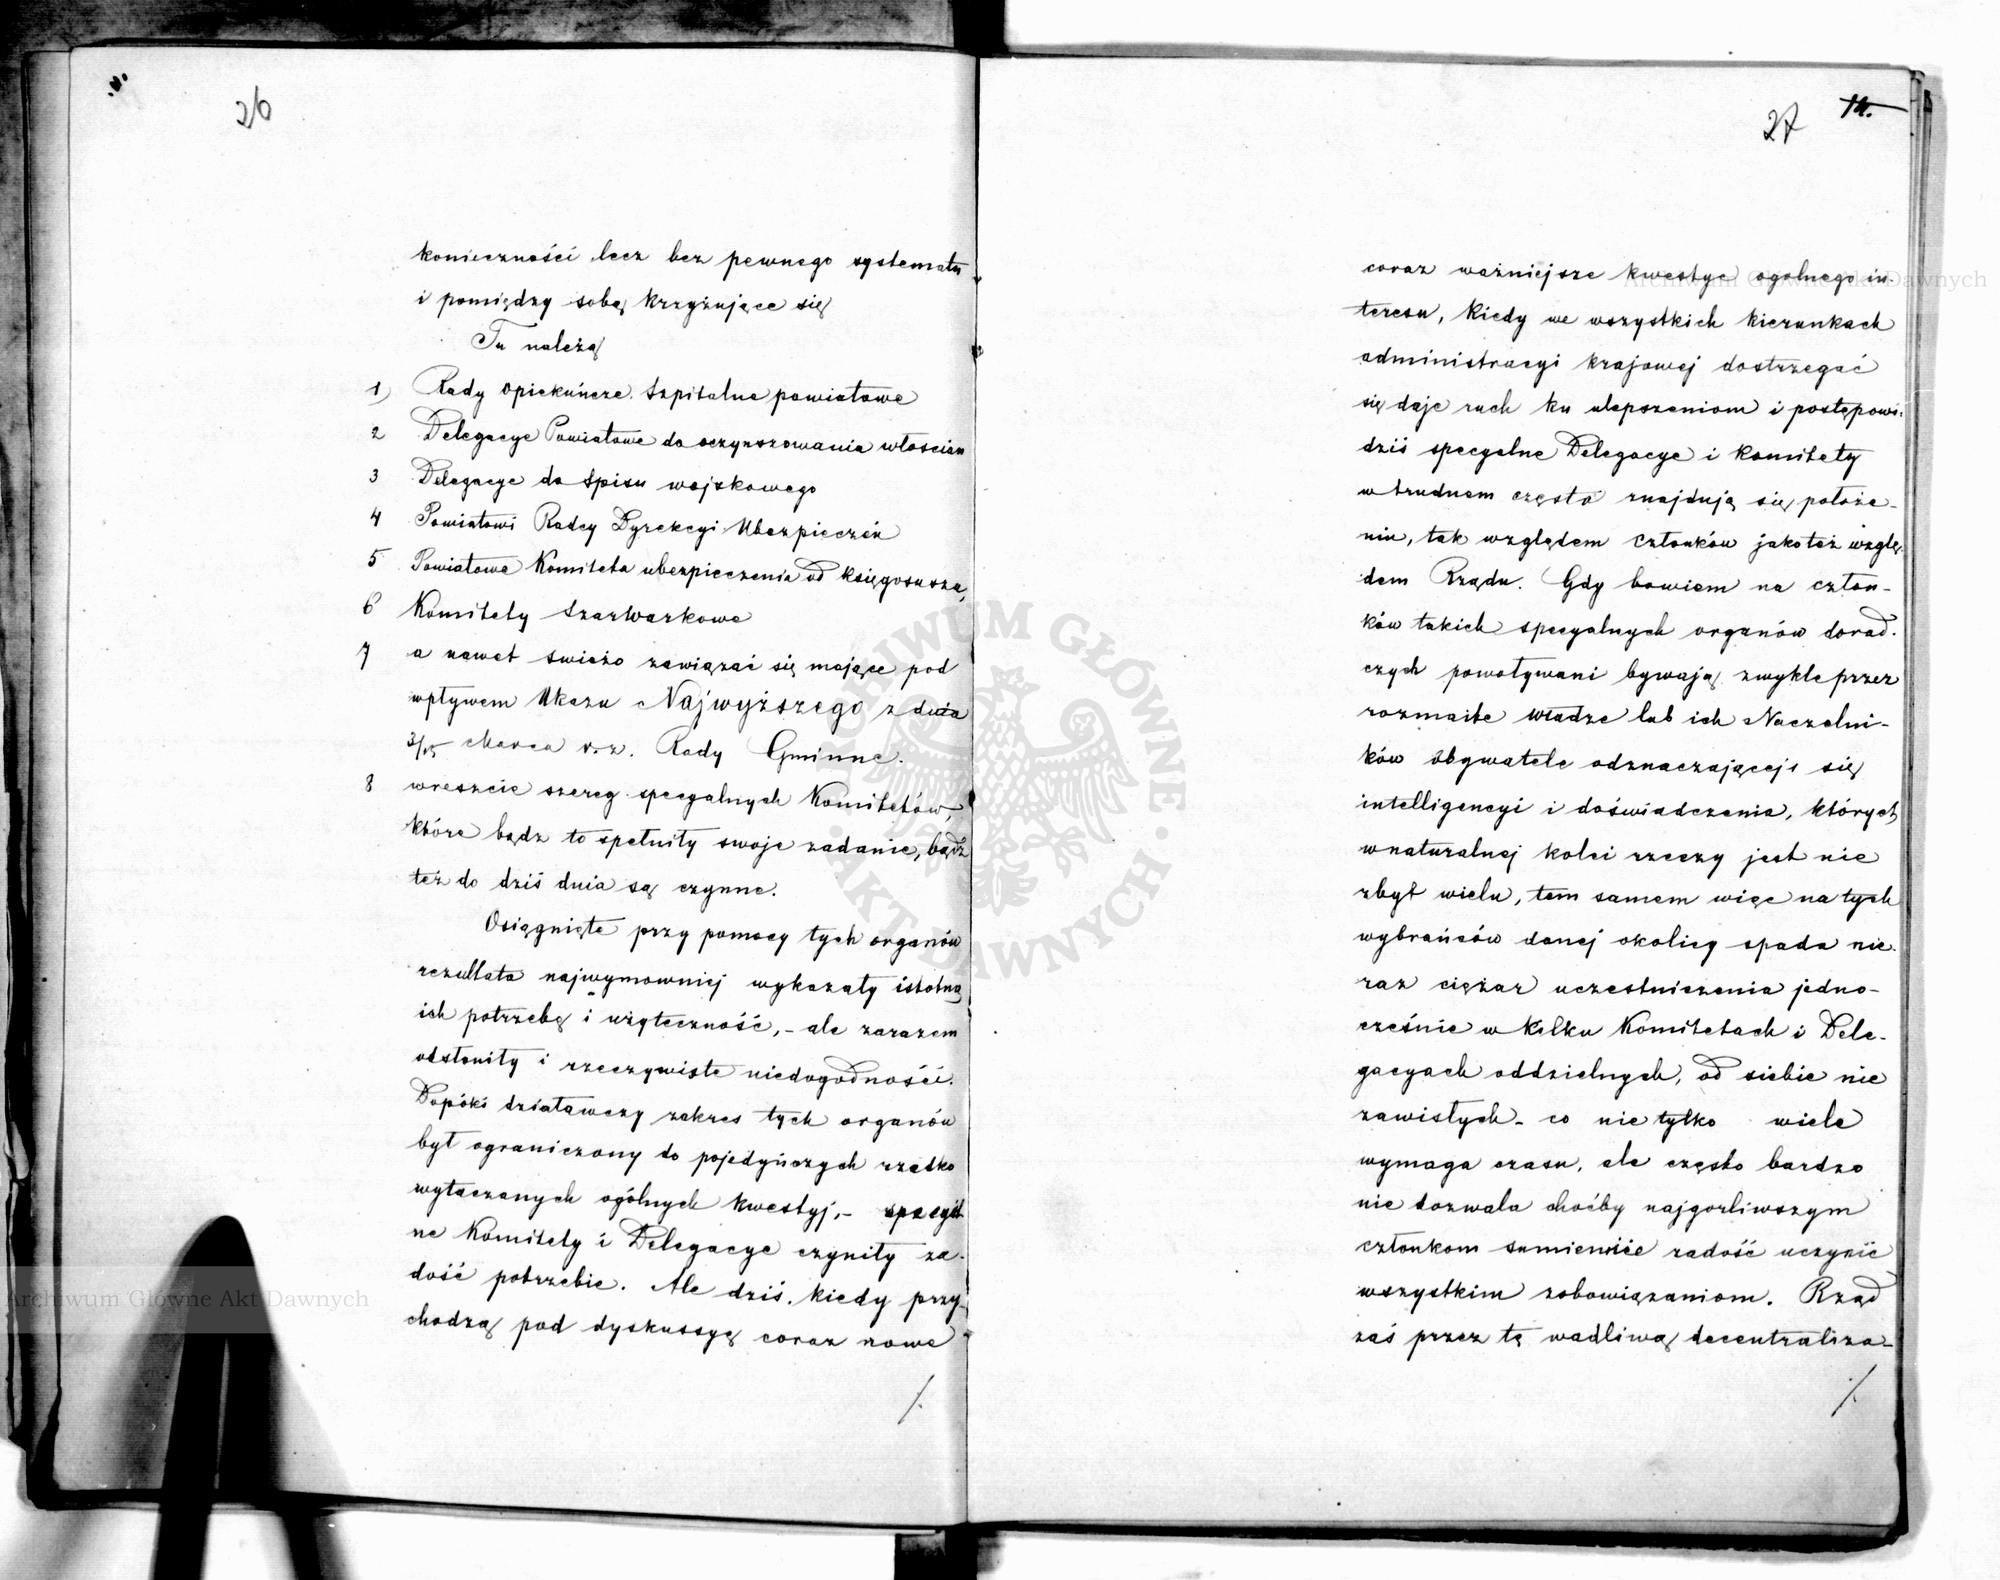 26
konieczności lecz bez pewnego systematu
i pomiędzy sobą krzyżujące się
Tu należą
1) Rady opiekuńcze Szpitalne powiatowe
2 Delegacye Powiatowe do oczynszowania włościan
3 Delegacye do Spisu wojskowego
4 Powiatowi Radcy Dyrekcyi Ubezpieczeń
5 Powiatowe Komiteta ubezpieczenia od księgosuszu,
6 Komitety Szarwarkowe
7 a nawet świeżo zawiązać się mające pod
wpływem Ukazu Najwyższego z dnia
3/15 Marca r.z. Rady Gminne.
8 wreszcie szereg specyalnych Komitetów,
które bądz to spełniły swoje zadanie, bądź
też do dziś dnia są czynne.
Osiągnięte przy pomocy tych organów
rezultata najwymowniej wykazały istotną
ich potrzebę i użyteczność, - ale zarazem
odsłoniły i rzeczywiste niedogodności.
Dopóki działawczy zakres tych organów
był ograniczony do pojedyńczych rzadko
wytaczanych ogólnych kwestyj, - specyal
ne Komitety i Delegacye czyniły za-
dość potrzebie. Ale dziś, kiedy przy-
chodzą pod dyskussyę coraz nowe
/.
27 14.
coraz ważniejsze kwestye ogolnego in-
teresu, Kiedy we wszystkich kierunkach
administracyi krajowej dostrzegać
się daje ruch ku ulepszeniom i postępowi:
dziś specyalne Delegacye i Komitety
w trudnem często znajdują się położe-
niu, tak względem członków jakoteż wzglę-
dem Rządu. Gdy bowiem na człon-
ków takich specyalnych organów dorad-
czych powoływani bywają zwykle przez
rozmaite władze lub ich Naczelni-
ków obywatele odznaczającej się
intelligencyi i doświadczenia, których
w naturalnej kolei rzeczy jest nie
zbyt wielu, tem samem więc na tych
wybrańców danej okolicy spada nie-
raz ciężar uczestniczenia jedno-
cześnie w kilku Komitetach i Dele-
gacyach oddzielnych, od siebie nie
zawisłych - co nie tylko wiele
wymaga czasu, ale często bardzo
nie dozwala choćby najgorliwszym
członkom sumiennie zadość uczynić
wszystkim zobowiązaniom. Rząd
zaś przez tę wadliwą decentraliza-
/.
Archiwum Główne Akt Dawnych
Archiwum Główne Akt Dawnych
ARCHIWUM GŁÓWNE • AKT DAWNYCH •